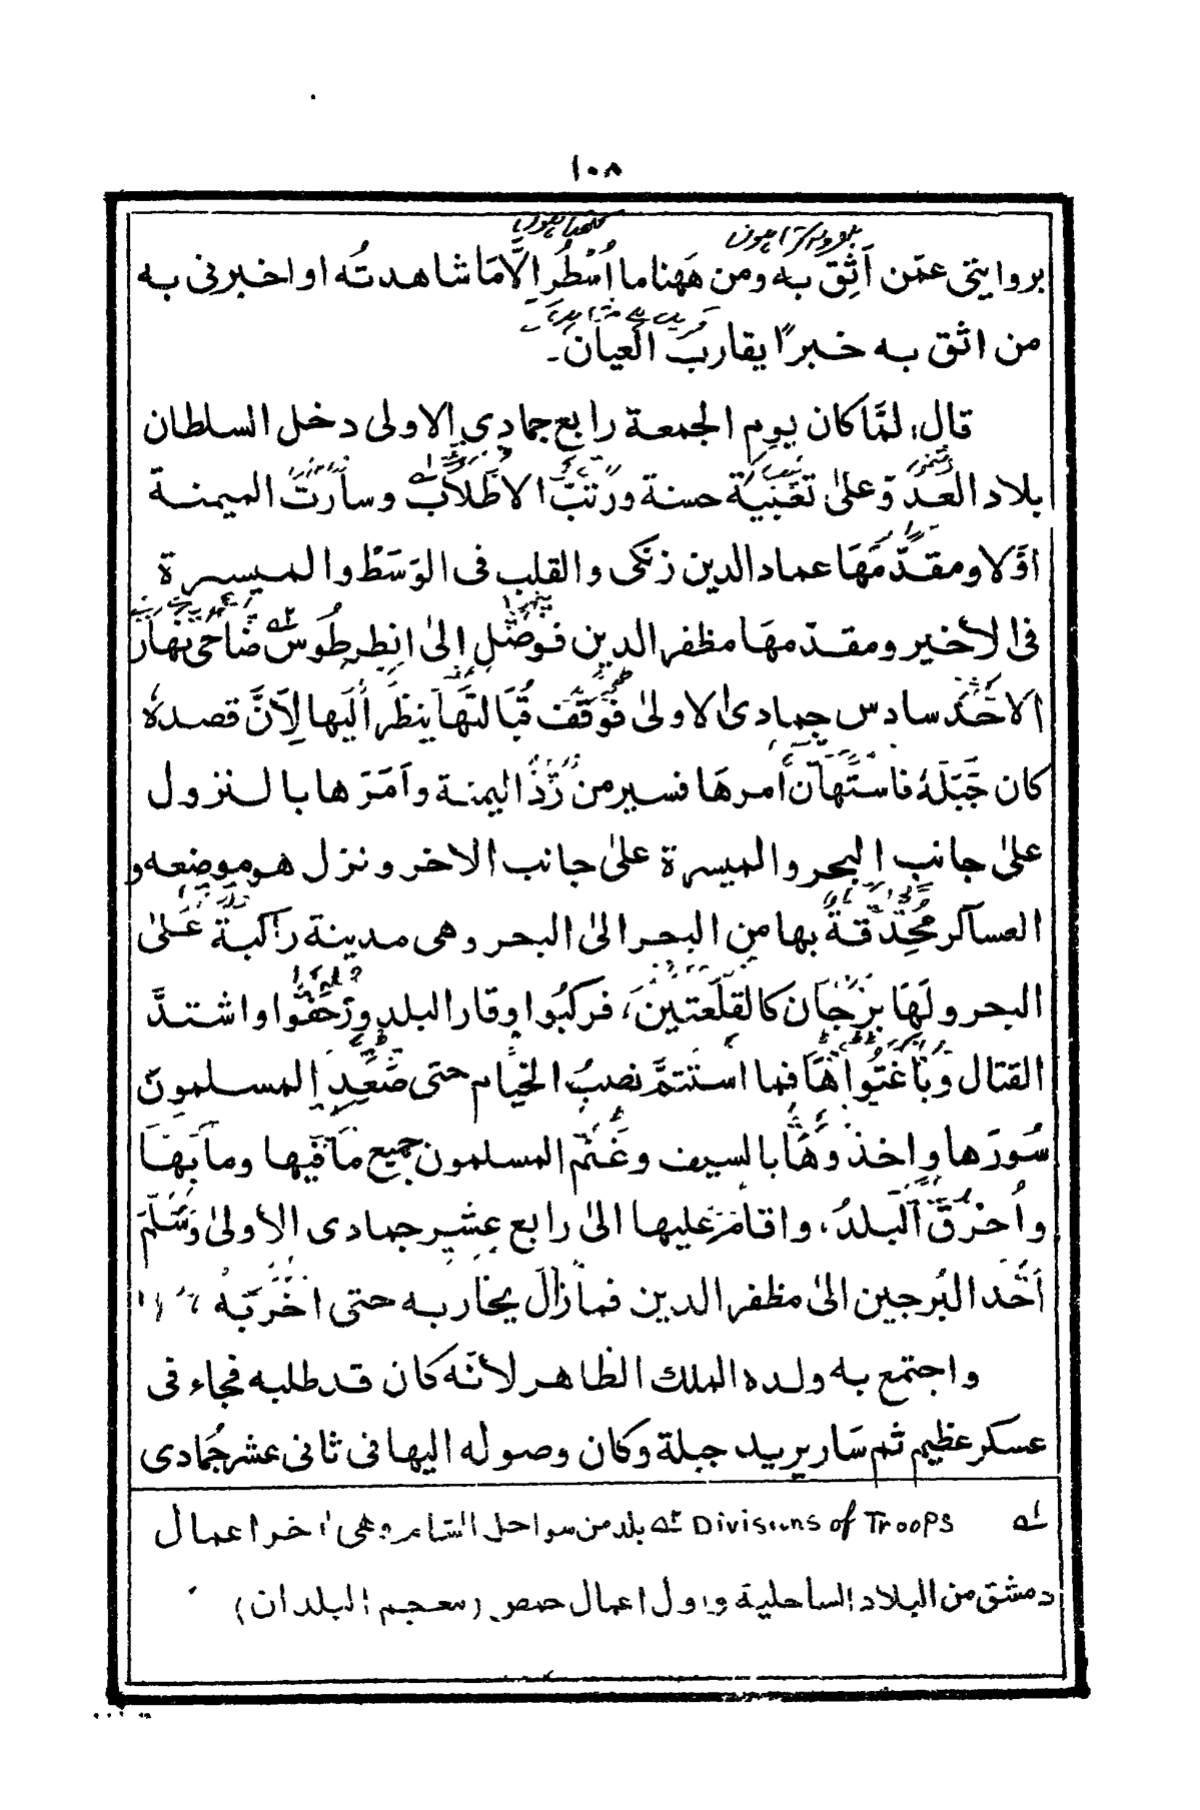 ١٠٨
بروايتى عمّن اَثِقُ به ومن هَهنا ما اُسْطُر الَّا مَا شاهدتُه او اخبرنى به
من اثق به خبرًا يقاربُ العيان۔
قال: لمَّا كان يوم الجمعة رابع جمادى الاولى دخل السلطان
بلاد العدوّ وعلىٰ تعبية حسنة ورتّبَ الاطلابَ وسارت الميمنة
اوّلا ومقدّمهَا عماد الدين زنكى والقلب فى الوَسَطْ والميسرة
فى الاخير ومقدّمهَا مظفر الدين فوصَل الىٰ انطرطُوس ضَاحى نهار
الاحَد سادس جمادىٰ الاولىٰ فوَقَف قُبَالتَهَا ينظر اليها لِاَنَّ قصده
كان جَبَلَةَ فاستَهان اَمرهَا فسير من رَدّ اليمنة واَمَرَها بالنزول
علىٰ جانب البحر والميسرة علىٰ جانب الاخر ونزل هو موضعه و
العساكر مُحْدِقَةٌ بها من البحر الىٰ البحر وهى مدينة راكبة عَلىٰ
البحر ولَهَا برْجَان كالقلعَتينْ، فركبُوا وقاربوا البلد وزَحَفُوا واشتدَّ
القتال وبَاغَتُوا هَا فما استتمَّ نصبُ الخيام حتى صَعِدَ المسلمون
سُورَها واخذوهَا بالسيف وغَنِمَ المسلمون جميع مَا فيها وما بهَا
واُحْرِقَ البلدُ، واقامَ عليها الىٰ رابع عشر جمادى الاولىٰ وسَلَّمَ
اَحَد البُرجين الىٰ مظفر الدين فما زَالَ يحَاربه حتى اخْرَبَهٗ
واجتمع به ولده الملك الظاهر لانّه كان قد طلبه فجاء فى
عسكر عظيم ثم سَار يريد جبلة وكان وصوله اليها فى ثانى عشر جُمادى
لہ Divisions of Troops ٢ہ بلد من سواحل الشام وهى اخر اعمال
دمشق من البلاد الساحلية واول اعمال حمص (معجم البلدان)